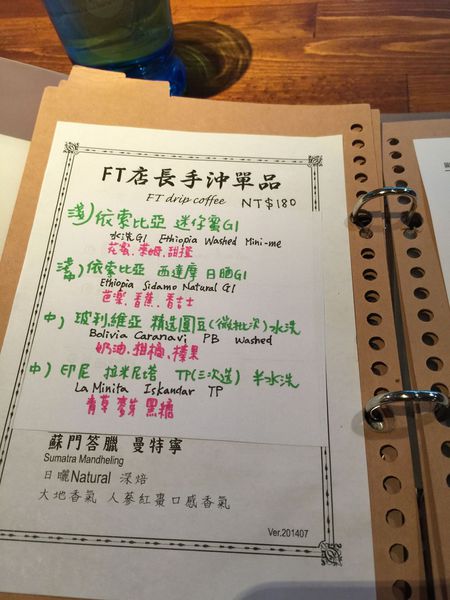 FT店長手沖單品
FT drip coffee NT$180
淺)依索比亞 迷仔蜜G1
水洗G1 Ethiopia Washed Mini-me
花蜜、萊姆、甜橙
淺)依索比亞 西達摩 日晒G1
Ethiopia Sidamo Natural G1
芭樂、香蕉、杏吉士
中) 玻利維亞 精选圓豆(微批次)水洗
Bolivia Caranavi PB Washed
奶油、柑橘、榛果
中) 印尼 拉米尼塔 TP(三次选) 半水洗
La Minita Iskandar TP
青草 麥芽 黑糖
蘇門答臘 曼特寧
Sumatra Mandheling
日曬Natural 深焙
大地香氣 人蔘紅棗口感香氣
Ver.201407